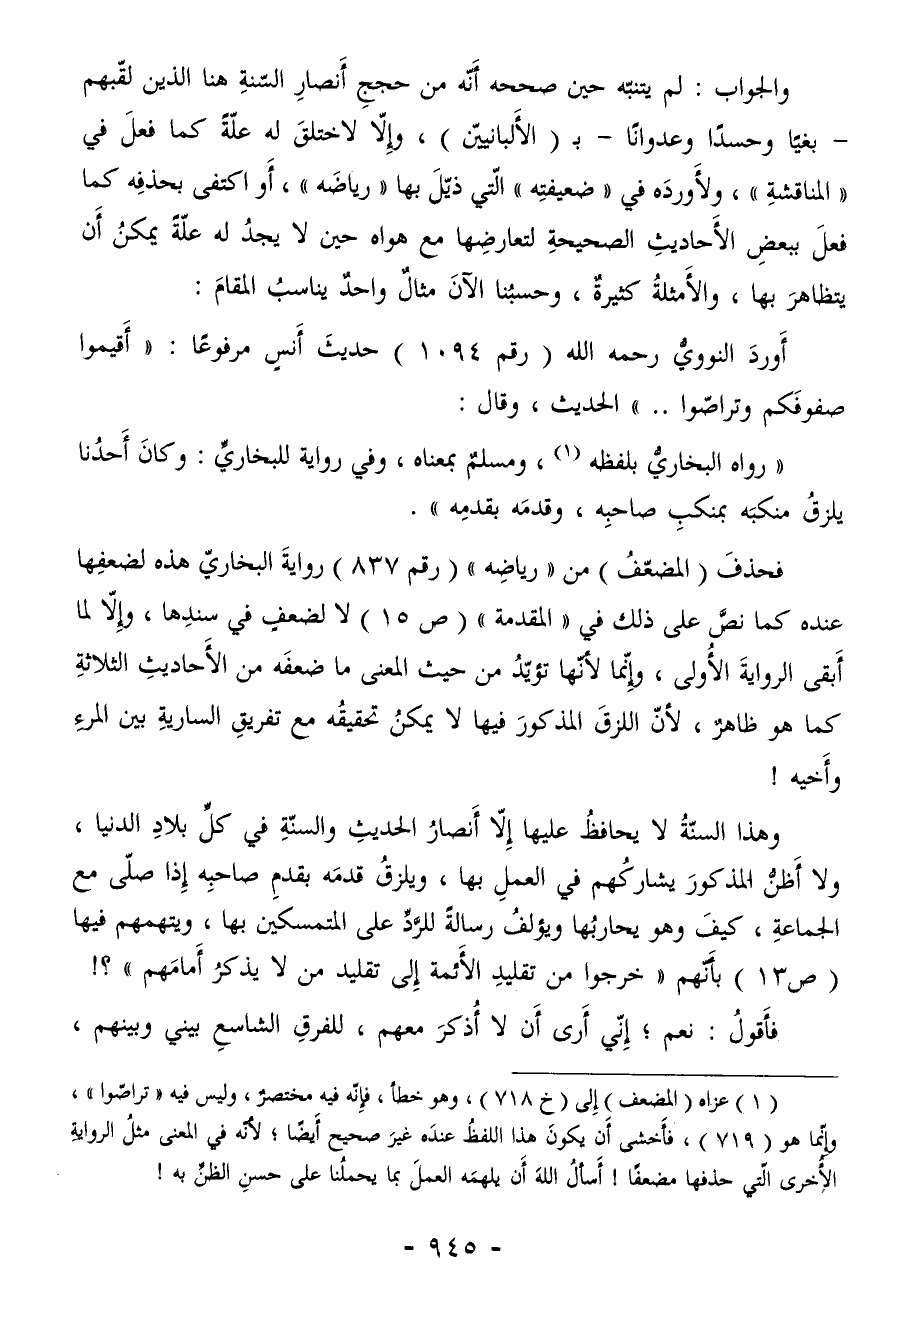 والجواب : لم يتنبّه حين صححه أَنّه من حججِ أَنصارِ السّنةِ هنا الذين لقّبهم
– بغيًا وحسدًا وعدوانًا – بـ ( الأَلبانيّين ) ، وإِلّا لاختلقَ له علّةً كما فعلَ في
« المناقشةِ » ، ولأَوردَه في « ضعيفتِه » الّتي ذيّلَ بها « رياضَه » ، أَو اكتفى بحذفِه كما
فعلَ ببعضِ الأَحاديثِ الصحيحةِ لتعارضِها مع هواه حين لا يجدُ له علّةً يمكنُ أَن
يتظاهرَ بها ، والأَمثلةُ كثيرةٌ ، وحسبُنا الآنَ مثالٌ واحدٌ يناسبُ المقامَ :
أَوردَ النوويُّ رحمه الله ( رقم ١٠٩٤ ) حديثَ أَنسٍ مرفوعًا : « أَقيموا
صفوفَكم وتراصّوا .. » الحديث ، وقال :
« رواه البخاريُّ بلفظه (١) ، ومسلمٌ بمعناه ، وفي رواية للبخاريِّ : وكانَ أَحدُنا
يلزقُ منكبَه بمنكبِ صاحبِه ، وقدمَه بقدمِه » .
فحذفَ ( المضعّفُ ) من « رياضِه » ( رقم ٨٣٧ ) روايةَ البخاريِّ هذه لضعفِها
عنده كما نصَّ على ذلك في « المقدمة » ( ص ١٥ ) لا لضعفٍ في سندِها ، وإِلّا لما
أَبقى الروايةَ الأُولى ، وإِنّما لأَنّها تؤيّدُ من حيث المعنى ما ضعفَه من الأَحاديثِ الثلاثةِ
كما هو ظاهرٌ ، لأَنّ اللزقَ المذكورَ فيها لا يمكنُ تحقيقُه مع تفريقِ الساريةِ بين المرءِ
وأَخيه !
وهذا السنّةُ لا يحافظُ عليها إِلّا أَنصارُ الحديثِ والسنّةِ في كلِّ بلادِ الدنيا ،
ولا أَظنُّ المذكورَ يشاركُهم في العملِ بها ، ويلزقُ قدمَه بقدمِ صاحبِه إِذا صلّى مع
الجماعةِ ، كيفَ وهو يحاربُها ويؤلفُ رسالةً للرَّدِّ على المتمسكين بها ، ويتهمهم فيها
( ص١٣ ) بأَنّهم « خرجوا من تقليدِ الأَئمة إِلى تقليد من لا يذكرُ أَمامَهم » ؟!
فأَقولُ : نعم ؛ إِنّي أَرى أَن لا أُذكرَ معهم ، للفرقِ الشاسعِ بيني وبينهم ،
( ١ ) عزاه ( المضعف ) إلى ( خ ٧١٨ ) ، وهو خطأ ، فإنّه فيه مختصرٌ ، وليس فيه « تراصّوا » ،
وإنّما هو ( ٧١٩ ) ، فأَخشى أَن يكونَ هذا اللفظُ عندَه غيرَ صحيح أَيضًا ؛ لأنّه في المعنى مثلُ الروايةِ
الأُخرى الّتي حذفها مضعفًا ! أَسألُ اللهَ أَن يلهمَه العملَ بما يحملُنا على حسنِ الظنِّ به !
- ٩٤٥ -